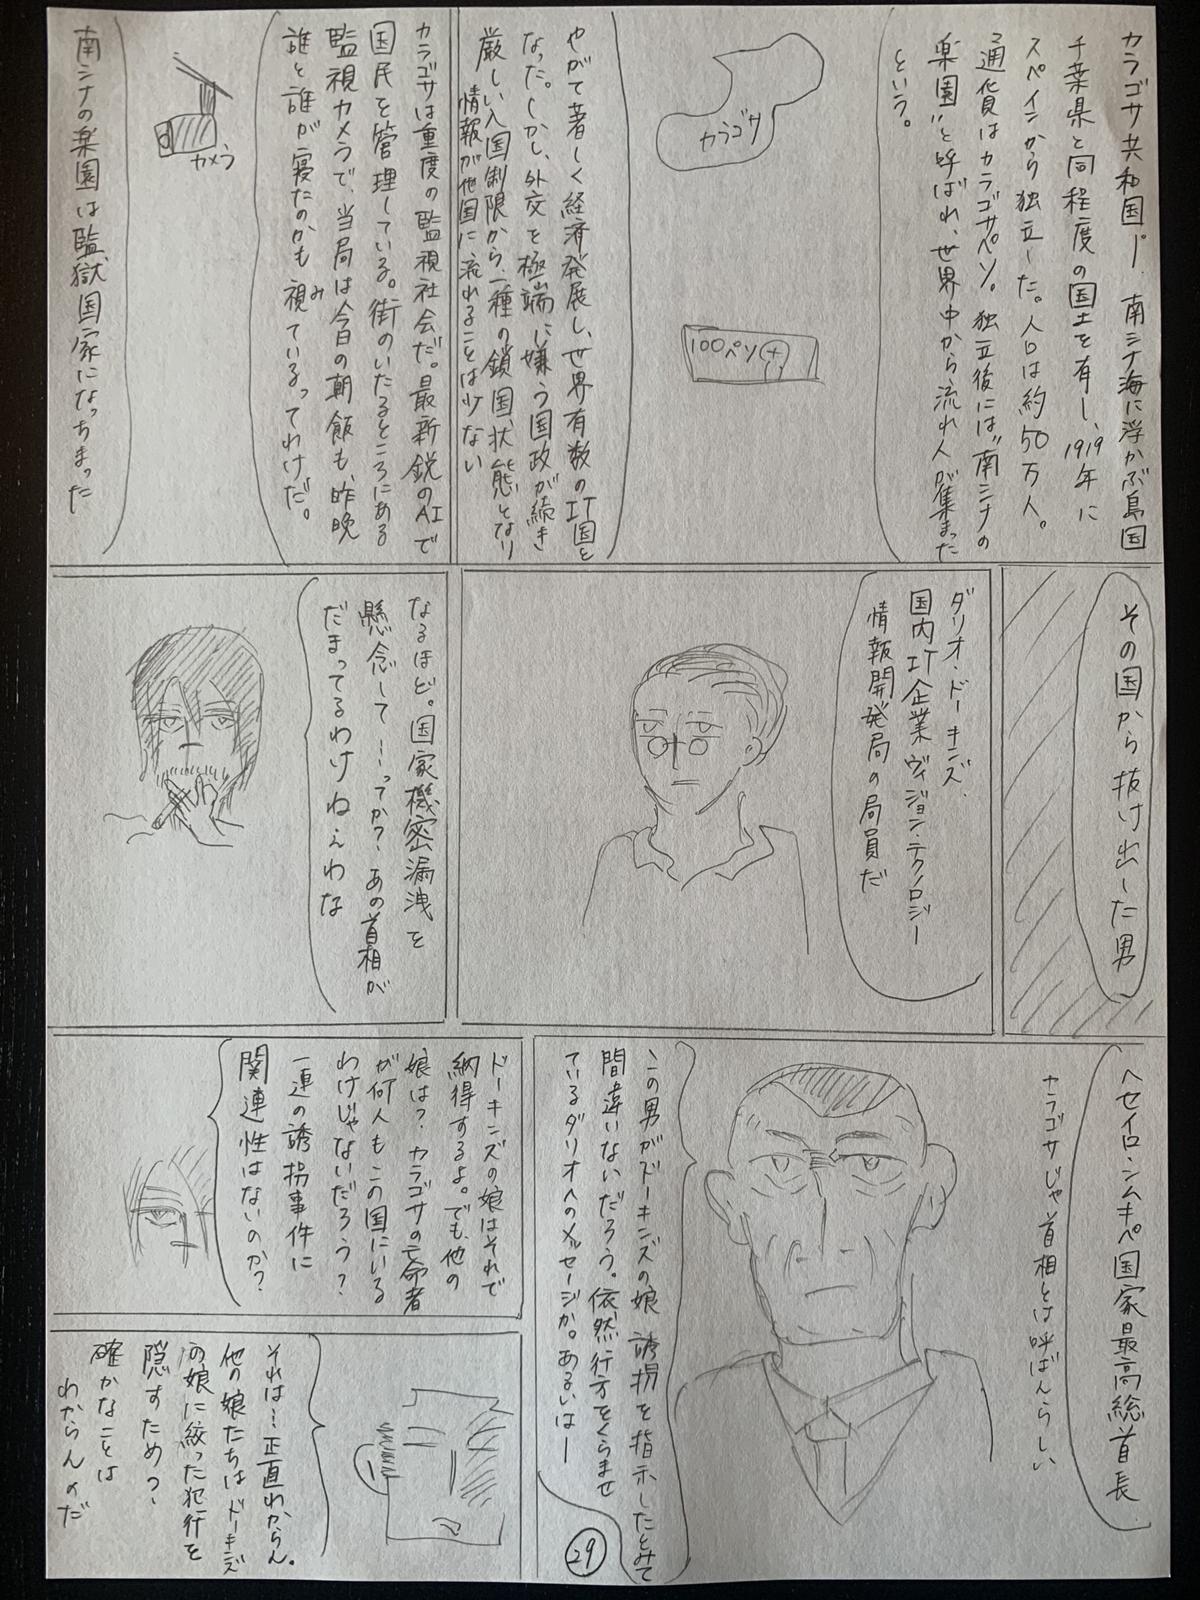 カラゴサ共和国ー。南シナ海に浮かぶ島国
千葉県と同程度の国土を有し、1919年に
スペインから独立した。人口は約50万人。
通貨はカラゴサペソ。独立後には"南シナの
楽園"と呼ばれ、世界中から流れ人が集まった
という。
カラゴサ
100ペソ
やがて著しく経済発展し、世界有数のIT国と
なった。しかし、外交を極端に嫌う国政が続き
厳しい入国制限から、一種の"鎖国"状態となり
情報が他国に流れることは少ない
カラゴサは重度の監視社会だ。最新鋭のAIで
国民を管理している。街のいたるところにある
監視カメラで、当局は今日の朝飯も、昨晩
誰と誰が寝たのかも視ているってわけだ。
み
カメラ
南シナの楽園は監獄国家になっちまった
その国から抜け出した男
ダリオ・ドーキンズ。
国内IT企業ヴィジョン・テクノロジー
情報開発局の局員だ
なるほど。国家機密漏洩を
懸念して…ってか?あの首相が
だまってるわけねぇわな
ヘセイロン・ムキペ国家最高総首長
カラゴサじゃ首相とは呼ばんらしい
この男がドーキンズの娘誘拐を指示したとみて
間違いないだろう。依然行方をくらませ
ているダリオへのメッセージか。あるいはー
ドーキンズの娘はそれで
納得するよ。でも、他の
娘は?カラゴサの亡命者
が何人もこの国にいる
わけじゃないだろう?
一連の誘拐事件に
関連性はないのか?
それは…正直わからん。
他の娘たちはドーキンズ
の娘に絞った犯行を
隠すため?
確かなことは
わからんのだ
29